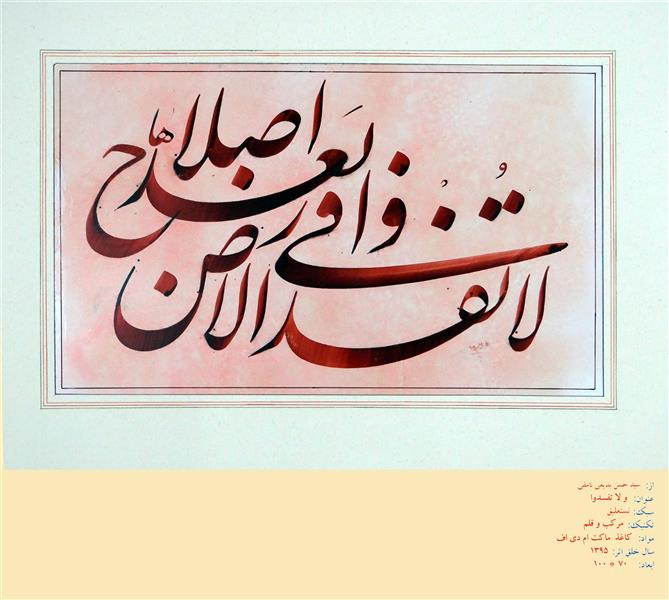 لا تُفْسِدُوا فی الارض بَعْدَ اصلاحها
از: سید حسن بدیعی نامقی
عنوان: و لا تفسدوا
سبک: نستعلیق
تکنیک: مرکب و قلم
مواد: کاغذ. ماکت ام دی اف
سال خلق اثر: ۱۳۹۵
ابعاد: ۷۰ * ۱۰۰